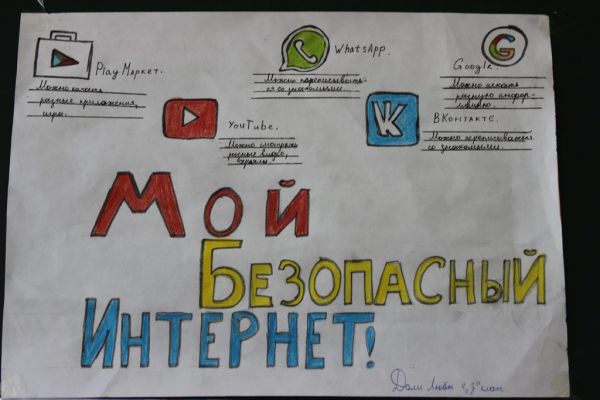 Play Маркет.
Можно качать
разные приложения,
игры.
WhatsApp.
Можно переписывать-
ся со знакомыми
G
Google.
Можно искать
разную инфор-
мацию.
YouTube.
Можно смотреть
разные видео,
VK
ВКонтакте.
Можно переписываться
со знакомыми.
Мой
Безопасный
Интернет!
"3"